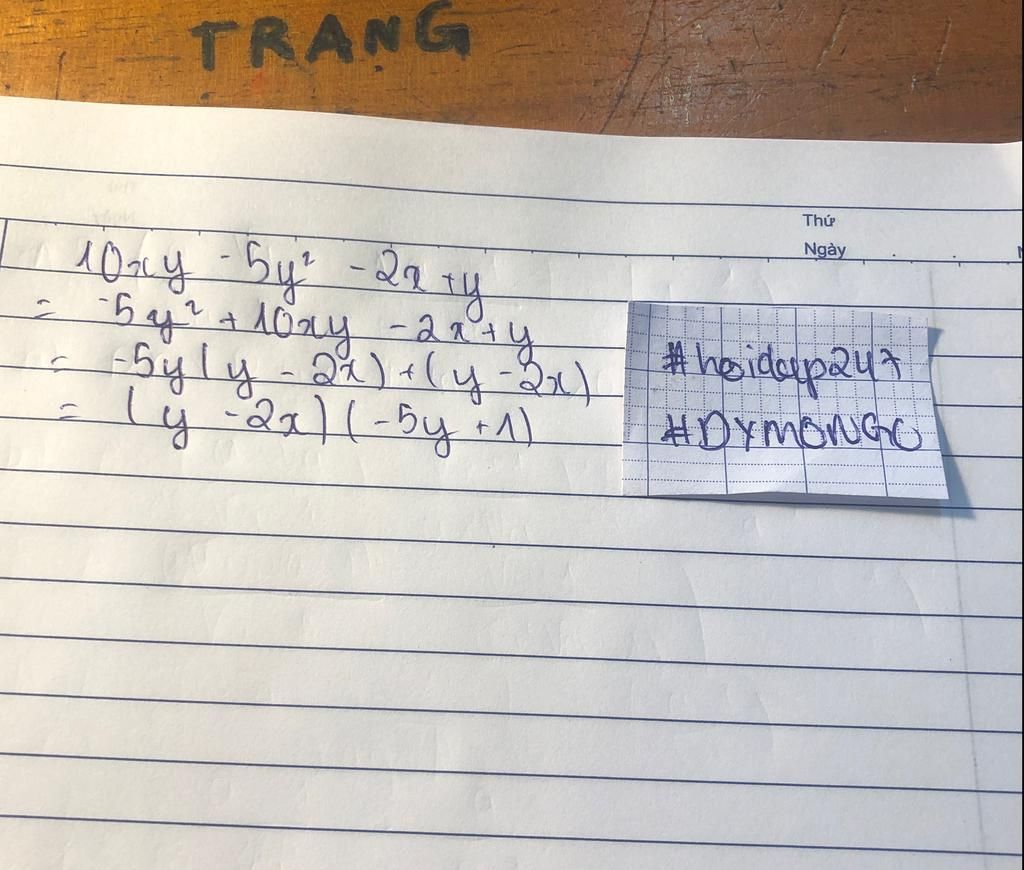 TRANG
Thứ
Ngày
10xy - 5y² - 2x + y
= -5y² + 10xy - 2x + y
= -5y(y - 2x) + (y - 2x)
= (y - 2x)(-5y + 1)
#hoidap247
#DYMONGO